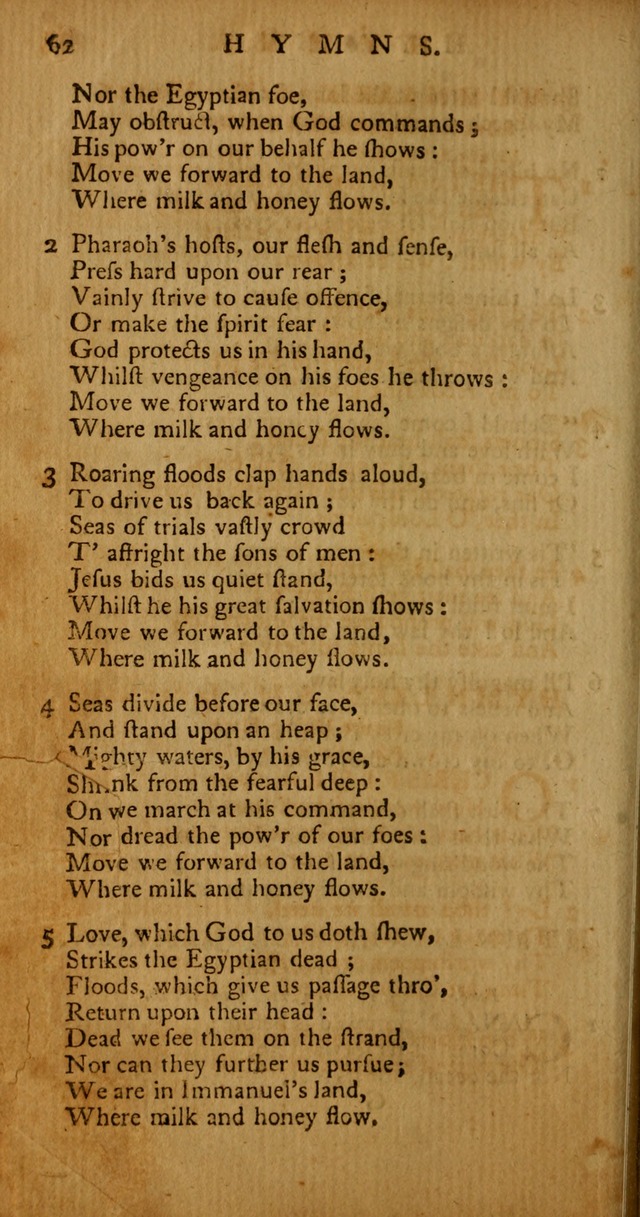 62 H Y M N S.
Nor the Egyptian foe,
May obſtruct, when God commands ;
His pow'r on our behalf he ſhows :
Move we forward to the land,
Where milk and honey flows.
2 Pharaoh's hoſts, our fleſh and ſenſe,
Preſs hard upon our rear ;
Vainly ſtrive to cauſe offence,
Or make the ſpirit fear :
God protects us in his hand,
Whilſt vengeance on his foes he throws :
Move we forward to the land,
Where milk and honey flows.
3 Roaring floods clap hands aloud,
To drive us back again ;
Seas of trials vaſtly crowd
T' affright the ſons of men :
Jeſus bids us quiet ſtand,
Whilſt he his great ſalvation ſhows :
Move we forward to the land,
Where milk and honey flows.
4 Seas divide before our face,
And ſtand upon an heap ;
Mighty waters, by his grace,
Shrink from the fearful deep :
On we march at his command,
Nor dread the pow'r of our foes :
Move we forward to the land,
Where milk and honey flows.
5 Love, which God to us doth ſhew,
Strikes the Egyptian dead ;
Floods, which give us paſſage thro',
Return upon their head :
Dead we ſee them on the ſtrand,
Nor can they further us purſue;
We are in Immanuel's land,
Where milk and honey flow.